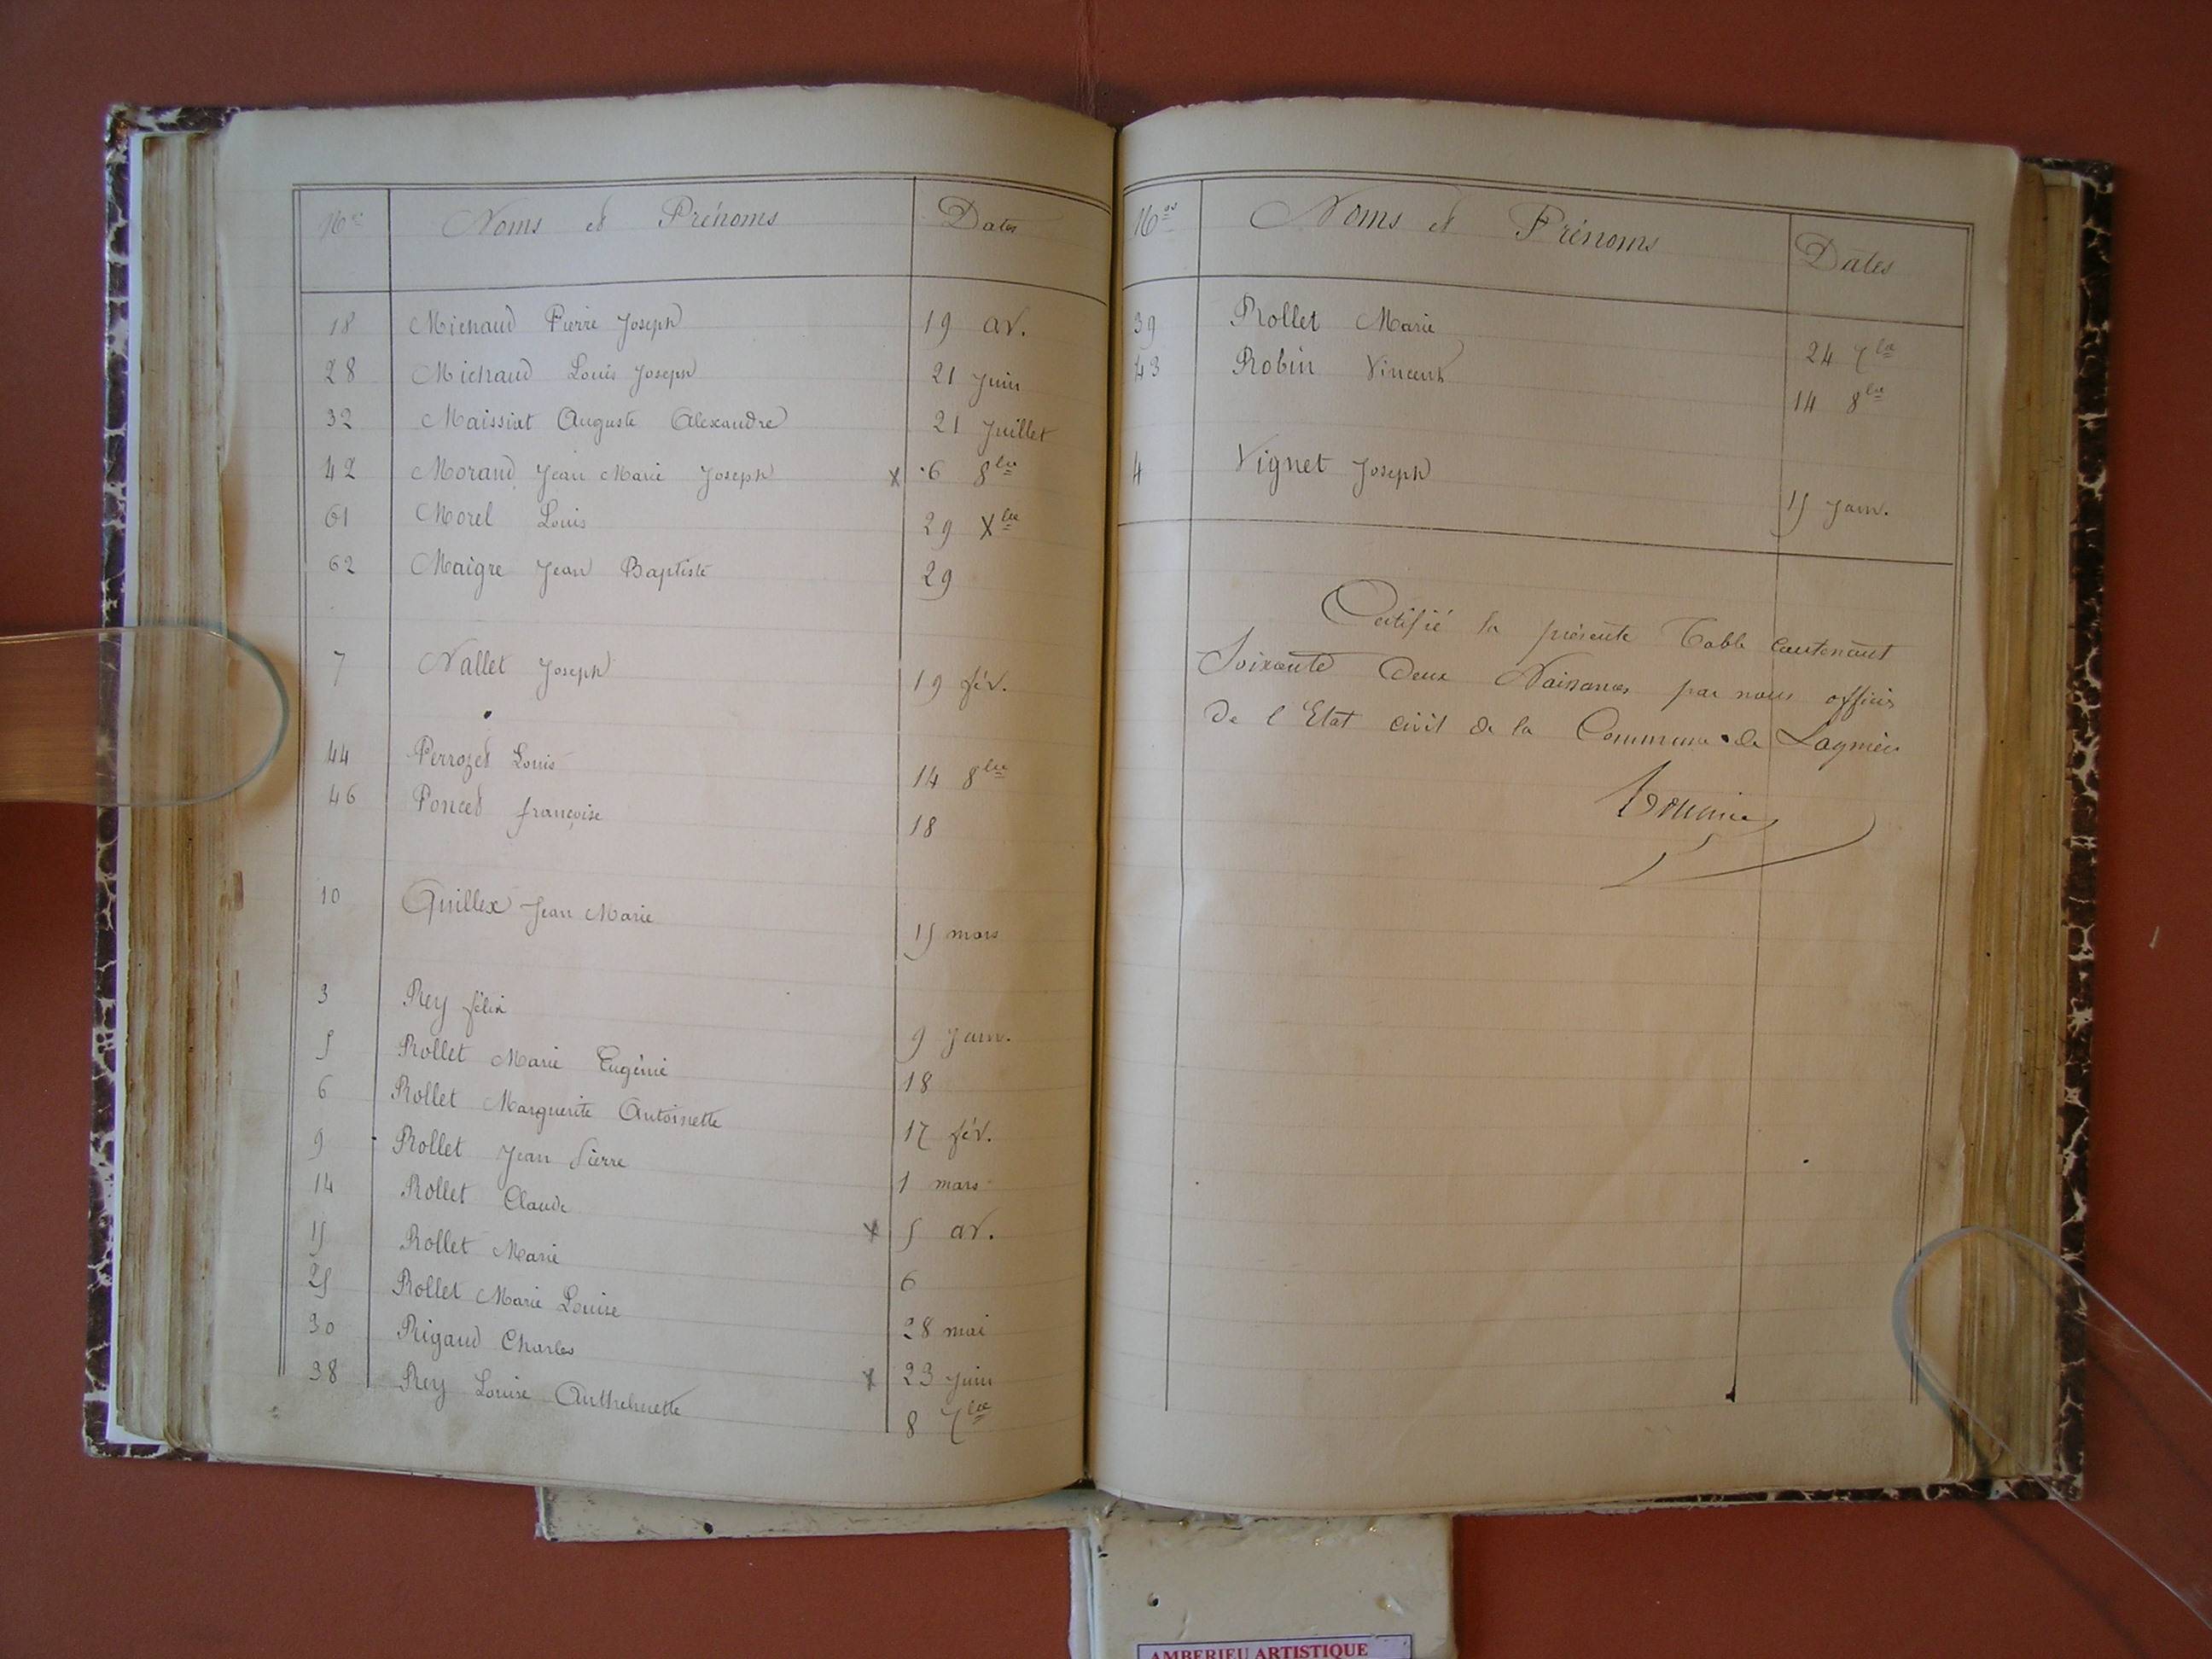 Nos Noms et Prénoms Dates
18 Michaud Pierre Joseph 19 av.
28 Michaud Louis Joseph 21 Juin
32 Maissiat Auguste Alexandre 21 Juillet
42 Morand Jean Marie Joseph x 6 8bre
61 Morel Louis 29 Xbre
62 Maigre Jean Baptiste 29
7 Nallet Joseph 19 fév.
44 Perrozet Louis 14 8bre
46 Poncet françoise 18
10 Quillex Jean Marie 15 mars
3 Rey félix 9 Janv.
5 Rollet Marie Eugénie 18
6 Rollet Marguerite Antoinette 17 fév.
9 Rollet Jean Pierre 1 mars
14 Rollet Claude x 5 av.
15 Rollet Marie 6
25 Rollet Marie Louise 28 mai
30 Rigaud Charles x 23 Juin
38 Rey Louise Anthelmette 8 7bre
Nos Noms et Prénoms Dates
39 Rollet Marie 24 7bre
43 Robin Vincent 14 8bre
4 Vignet Joseph 15 Janv.
Certifié la présente Table contenant
Soixante Deux Naissances par nous officier
De l'Etat civil de la Commune de Lagnieu
AMBERIEU ARTISTIQUE